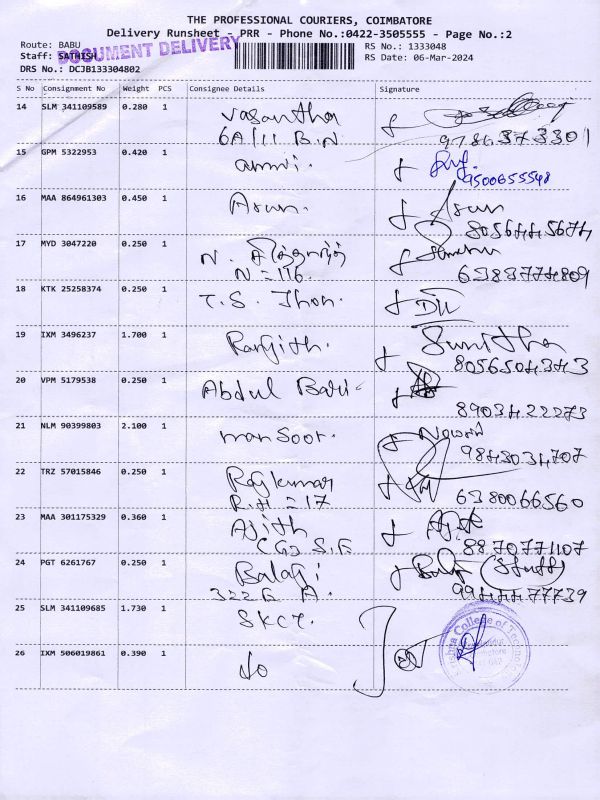 THE PROFESSIONAL COURIERS, COIMBATORE
Delivery Runsheet - PRR - Phone No.:0422-3505555 - Page No.:2
Route: BABU RS No.: 1333048
Staff: SATHISH RS Date: 06-Mar-2024
DOCUMENT DELIVERY
DRS No.: DCJB133304802
S No Consignment No Weight PCS Consignee Details Signature
14 SLM 341109589 0.280 1 Vasantha
6A/11 B.N 9786373301
15 GPM 5322953 0.420 1
9500655548
16 MAA 864961303 0.450 1 Arun. Arun
8056445674
17 MYD 3047220 0.250 1 N.
N = 116. 6383774809
18 KTK 25258374 0.250 1 T.S. Jhon.
19 IXM 3496237 1.700 1 Ranjith. Sunitha
8056504343
20 VPM 5179538 0.250 1 Abdul Bari
8903422273
21 NLM 90399803 2.100 1 mansoor.
9843034707
22 TRZ 57015846 0.250 1 Rajkumar
R.H = 17 6380066560
23 MAA 301175329 0.360 1 Ajith
8870771107
24 PGT 6261767 0.250 1 Balaji Balaji (Staff)
322G A. 9944477739
25 SLM 341109685 1.730 1 SKCT.
26 IXM 506019861 0.390 1 do